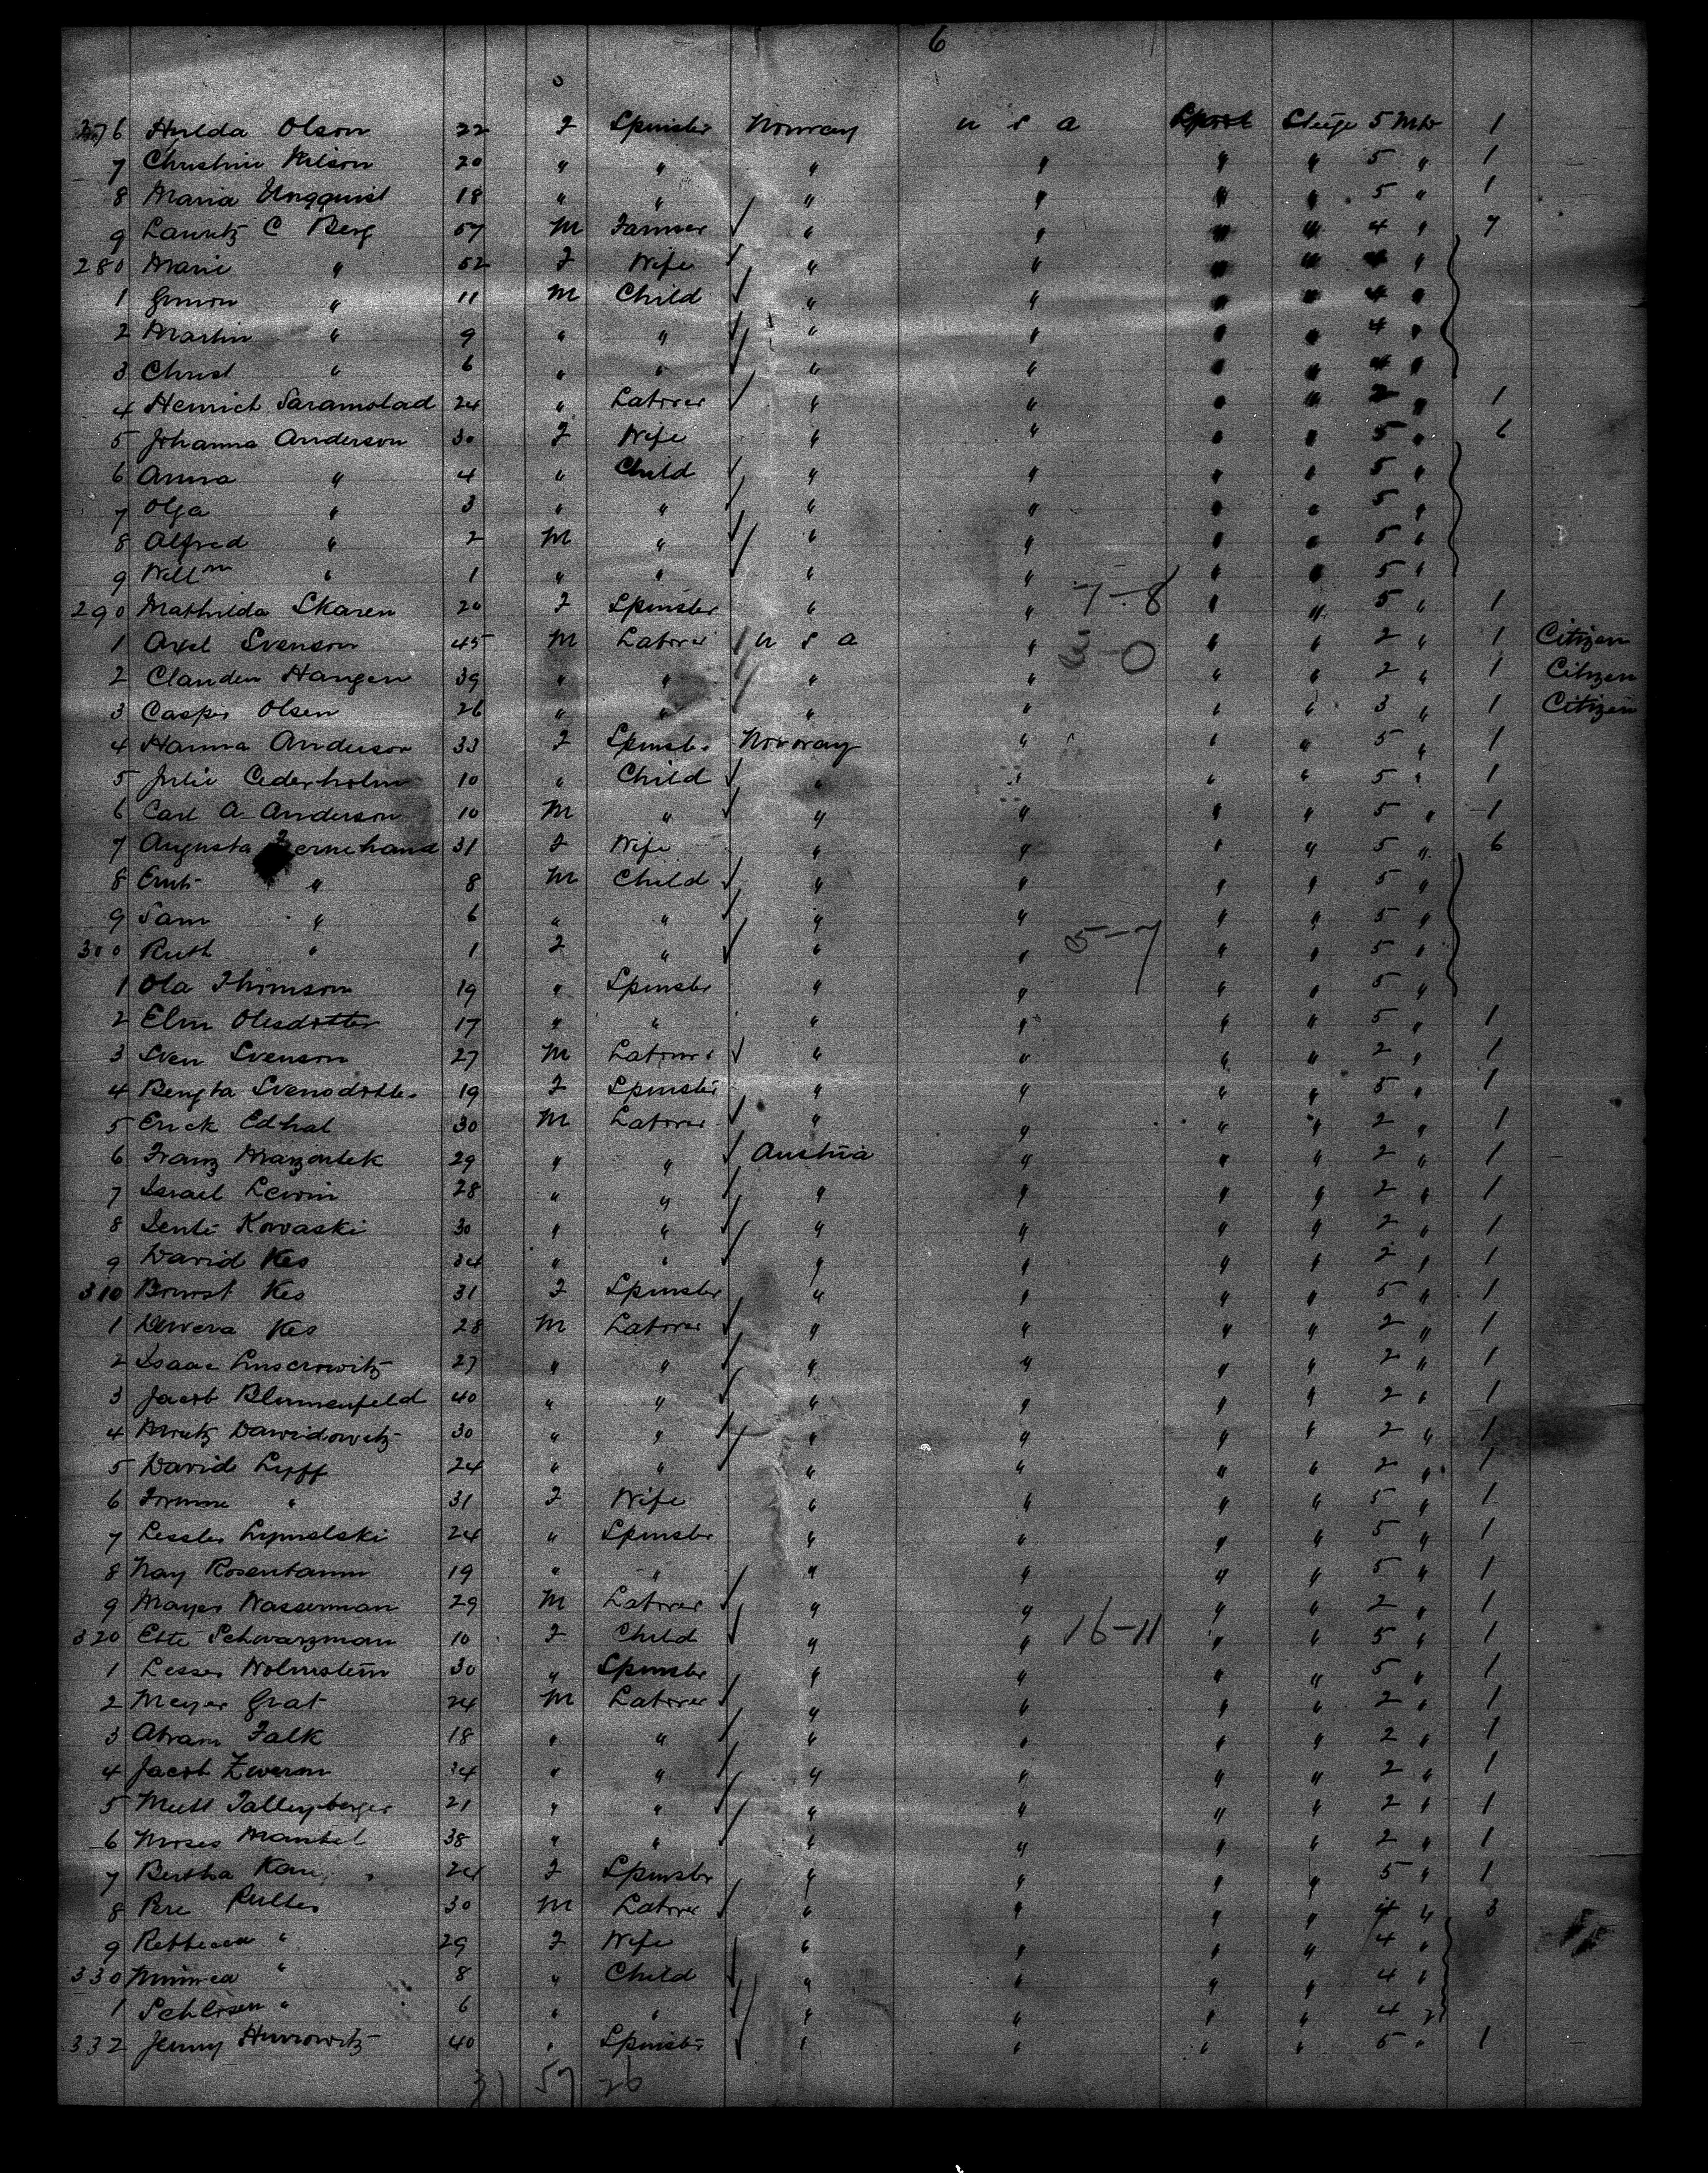 6
276 Hulda Olson 22 F Spinster Norway U S A Lpool Steige 5 Mts 1
7 Christine Nilson 20 " " " " " " 5 " 1
8 Maria Ungquist 18 " " " " " " 5 " 1
9 Lauritz C Berg 57 M Farmer " " " " 4 " 7
280 Marie " 52 F Wife " " " " 4 "
1 " 11 M Child " " " " 4 "
2 Martin " 9 " " " " " " 4 "
3 Christ " 6 " " " " " " 4 "
4 Henrich 24 " Laborer " " " " 2 " 1
5 Johanna Anderson 30 F Wife " " " " 5 " 6
6 Anna " 4 " Child " " " " 5 "
7 Olga " 3 " " " " " " 5 "
8 Alfred " 2 M " " " " " 5 "
9 Willm " 1 " " " " " " 5 "
290 Mathilda Skaren 20 F Spinster " " 7-8 " " 5 " 1
1 Axel Svenson 45 M Laborer U S A " 3-0 " " 2 " 1 Citizen
2 Clauden Hangen 39 " " " " " " 2 " 1 Citizen
3 Casper Olsen 26 " " " " " " 3 " 1 Citizen
4 Hanna Anderson 33 F Spinster Norway " " " 5 " 1
5 Julie Cederholm 10 " Child " " " " 5 " 1
6 Carl A Anderson 10 M " " " " " 5 " 1
7 Augusta 31 F Wife " " " " 5 " 6
8 " 8 M Child " " " " 5 "
9 Sam " 6 " " " " " " 5 "
300 Ruth " 1 F " " " 5-7 " " 5 "
1 Ola Thomson 19 " Spinster " " " " 5 "
2 Elin Olesdotter 17 " " " " " " 5 " 1
3 Sven Svenson 27 M Laborer " " " " 2 " 1
4 Bengta Svensdotter 19 F Spinster " " " " 5 " 1
5 Erick Edhal 30 M Laborer " " " " 2 " 1
6 Franz 29 " " Austria " " " 2 " 1
7 Israel Lewin 28 " " " " " " 2 " 1
8 Kowaski 30 " " " " " " 2 " 1
9 David Kes 34 " " " " " " 2 " 1
310 Kes 31 F Spinster " " " " 5 " 1
1 Kes 28 M Laborer " " " " 2 " 1
2 Isaac 27 " " " " " " 2 " 1
3 Jacob Blumenfeld 40 " " " " " " 2 " 1
4 Dawidowitz 30 " " " " " " 2 " 1
5 David Lyff 24 " " " " " " 2 " 1
6 " 31 F Wife " " " " 5 " 1
7 24 " Spinster " " " " 5 " 1
8 Rosenbaum 19 " " " " " " 5 " 1
9 Mayer Wasserman 29 M Laborer " " " " 2 " 1
320 Ette Schwarzman 10 F Child " " 16-11 " " 5 " 1
1 Lesser Wolmstein 30 " Spinster " " " " 5 " 1
2 Meyer Grat 24 M Laborer " " " " 2 " 1
3 Abram Falk 18 " " " " " " 2 " 1
4 Jacob 34 " " " " " " 2 " 1
5 21 " " " " " " 2 " 1
6 Moses Mantel 38 " " " " " " 2 " 1
7 Bertha Kan 24 F Spinster " " " " 5 " 1
8 30 M Laborer " " " " 4 " 3
9 Rebbecca " 29 F Wife " " " " 4 "
330 " 8 " Child " " " " 4 "
1 " 6 " " " " " " 4 "
332 Jenny Hurrowitz 40 " Spinster " " " " 5 " 1
31 57 26